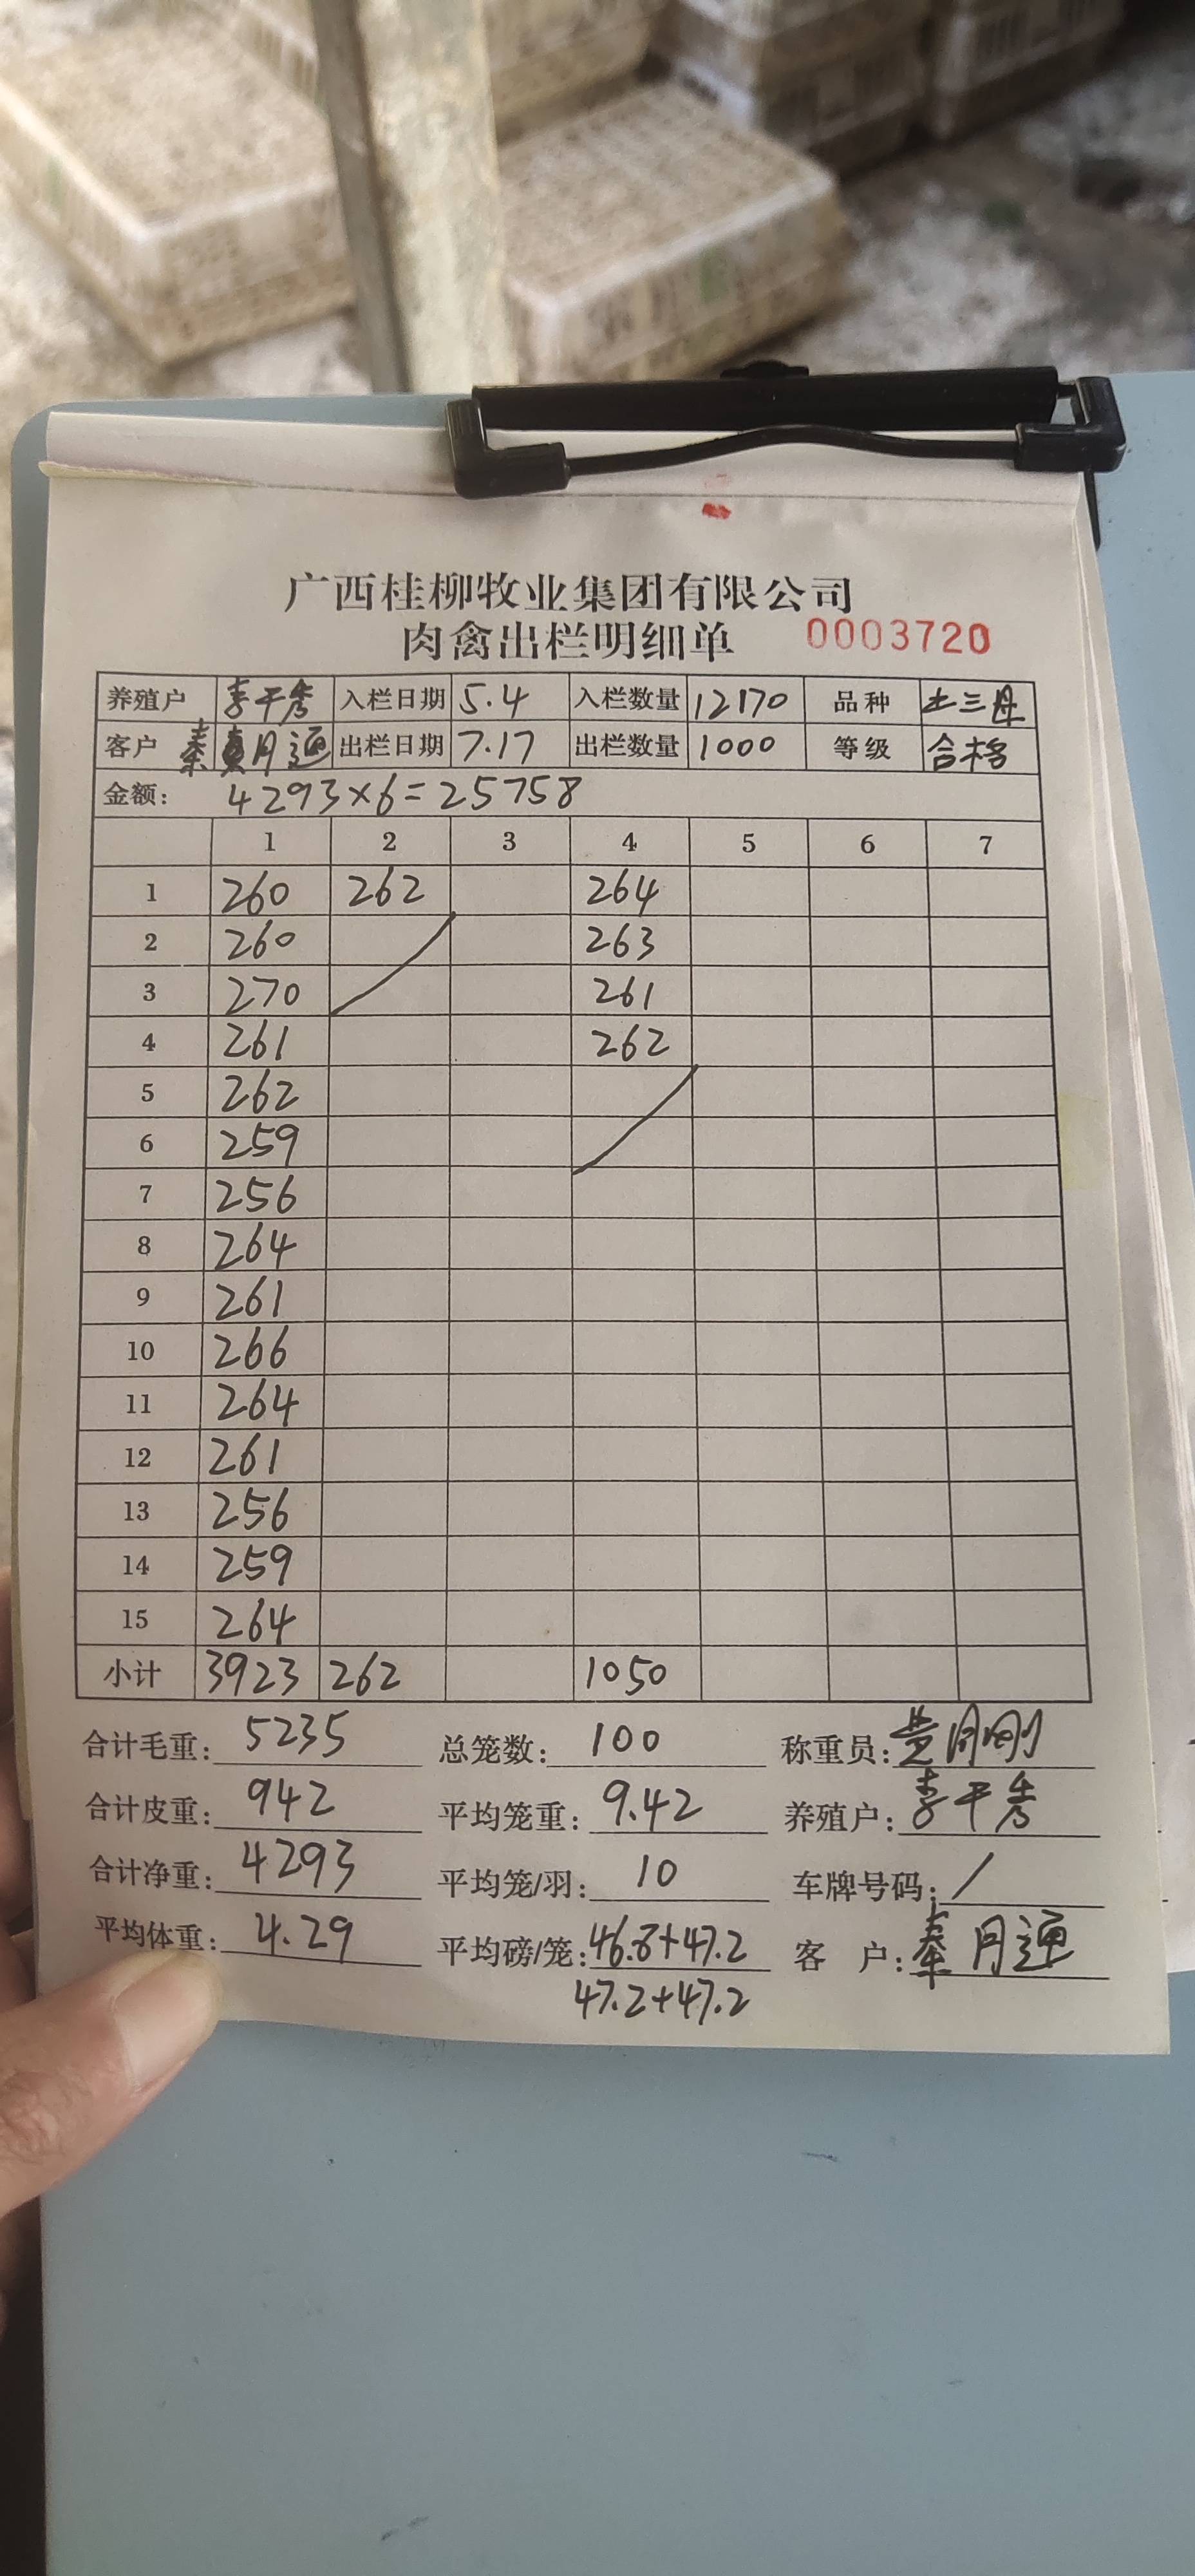 广西桂柳牧业集团有限公司
肉禽出栏明细单 0003720
养殖户 李干秀 入栏日期 5.4 入栏数量 12170 品种 土三母
客户 秦月通 出栏日期 7.17 出栏数量 1000 等级 合格
金额: 4293×6=25758
1 2 3 4 5 6 7
1 260 262 264
2 260 263
3 270 261
4 261 262
5 262
6 259
7 256
8 264
9 261
10 266
11 264
12 261
13 256
14 259
15 264
小计 3923 262 1050
合计毛重: 5235 总笼数: 100 称重员: 黄月刚
合计皮重: 942 平均笼重: 9.42 养殖户: 李干秀
合计净重: 4293 平均笼/羽: 10 车牌号码: /
平均体重: 4.29 平均磅/笼: 46.8+47.2 客 户: 秦月通
47.2+47.2